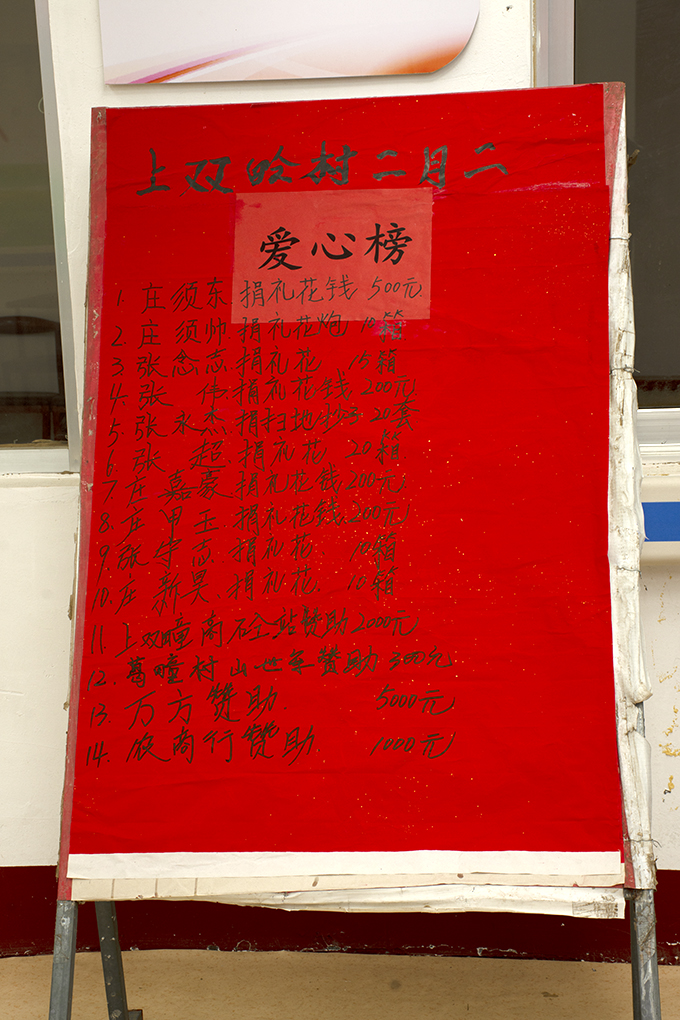 上双疃村二月二
爱心榜
1. 庄须东 捐礼花钱 500元
2. 庄须帅 捐礼花炮 10箱
3 张念志 捐礼花 15箱
4. 张 伟 捐礼花钱 200元
5. 张永杰 捐扫地 20套
6 张 超 捐礼花 20箱
7 庄嘉豪 捐礼花钱 200元
8. 庄甲玉 捐礼花钱 200元
9. 张守志 捐礼花. 10箱
10. 庄新昊. 捐礼花. 10箱
11. 上双疃商石全站赞助2000元
12. 葛疃村 山世军赞助 300元
13 万方赞助. 5000元
14. 农商行赞助. 1000元